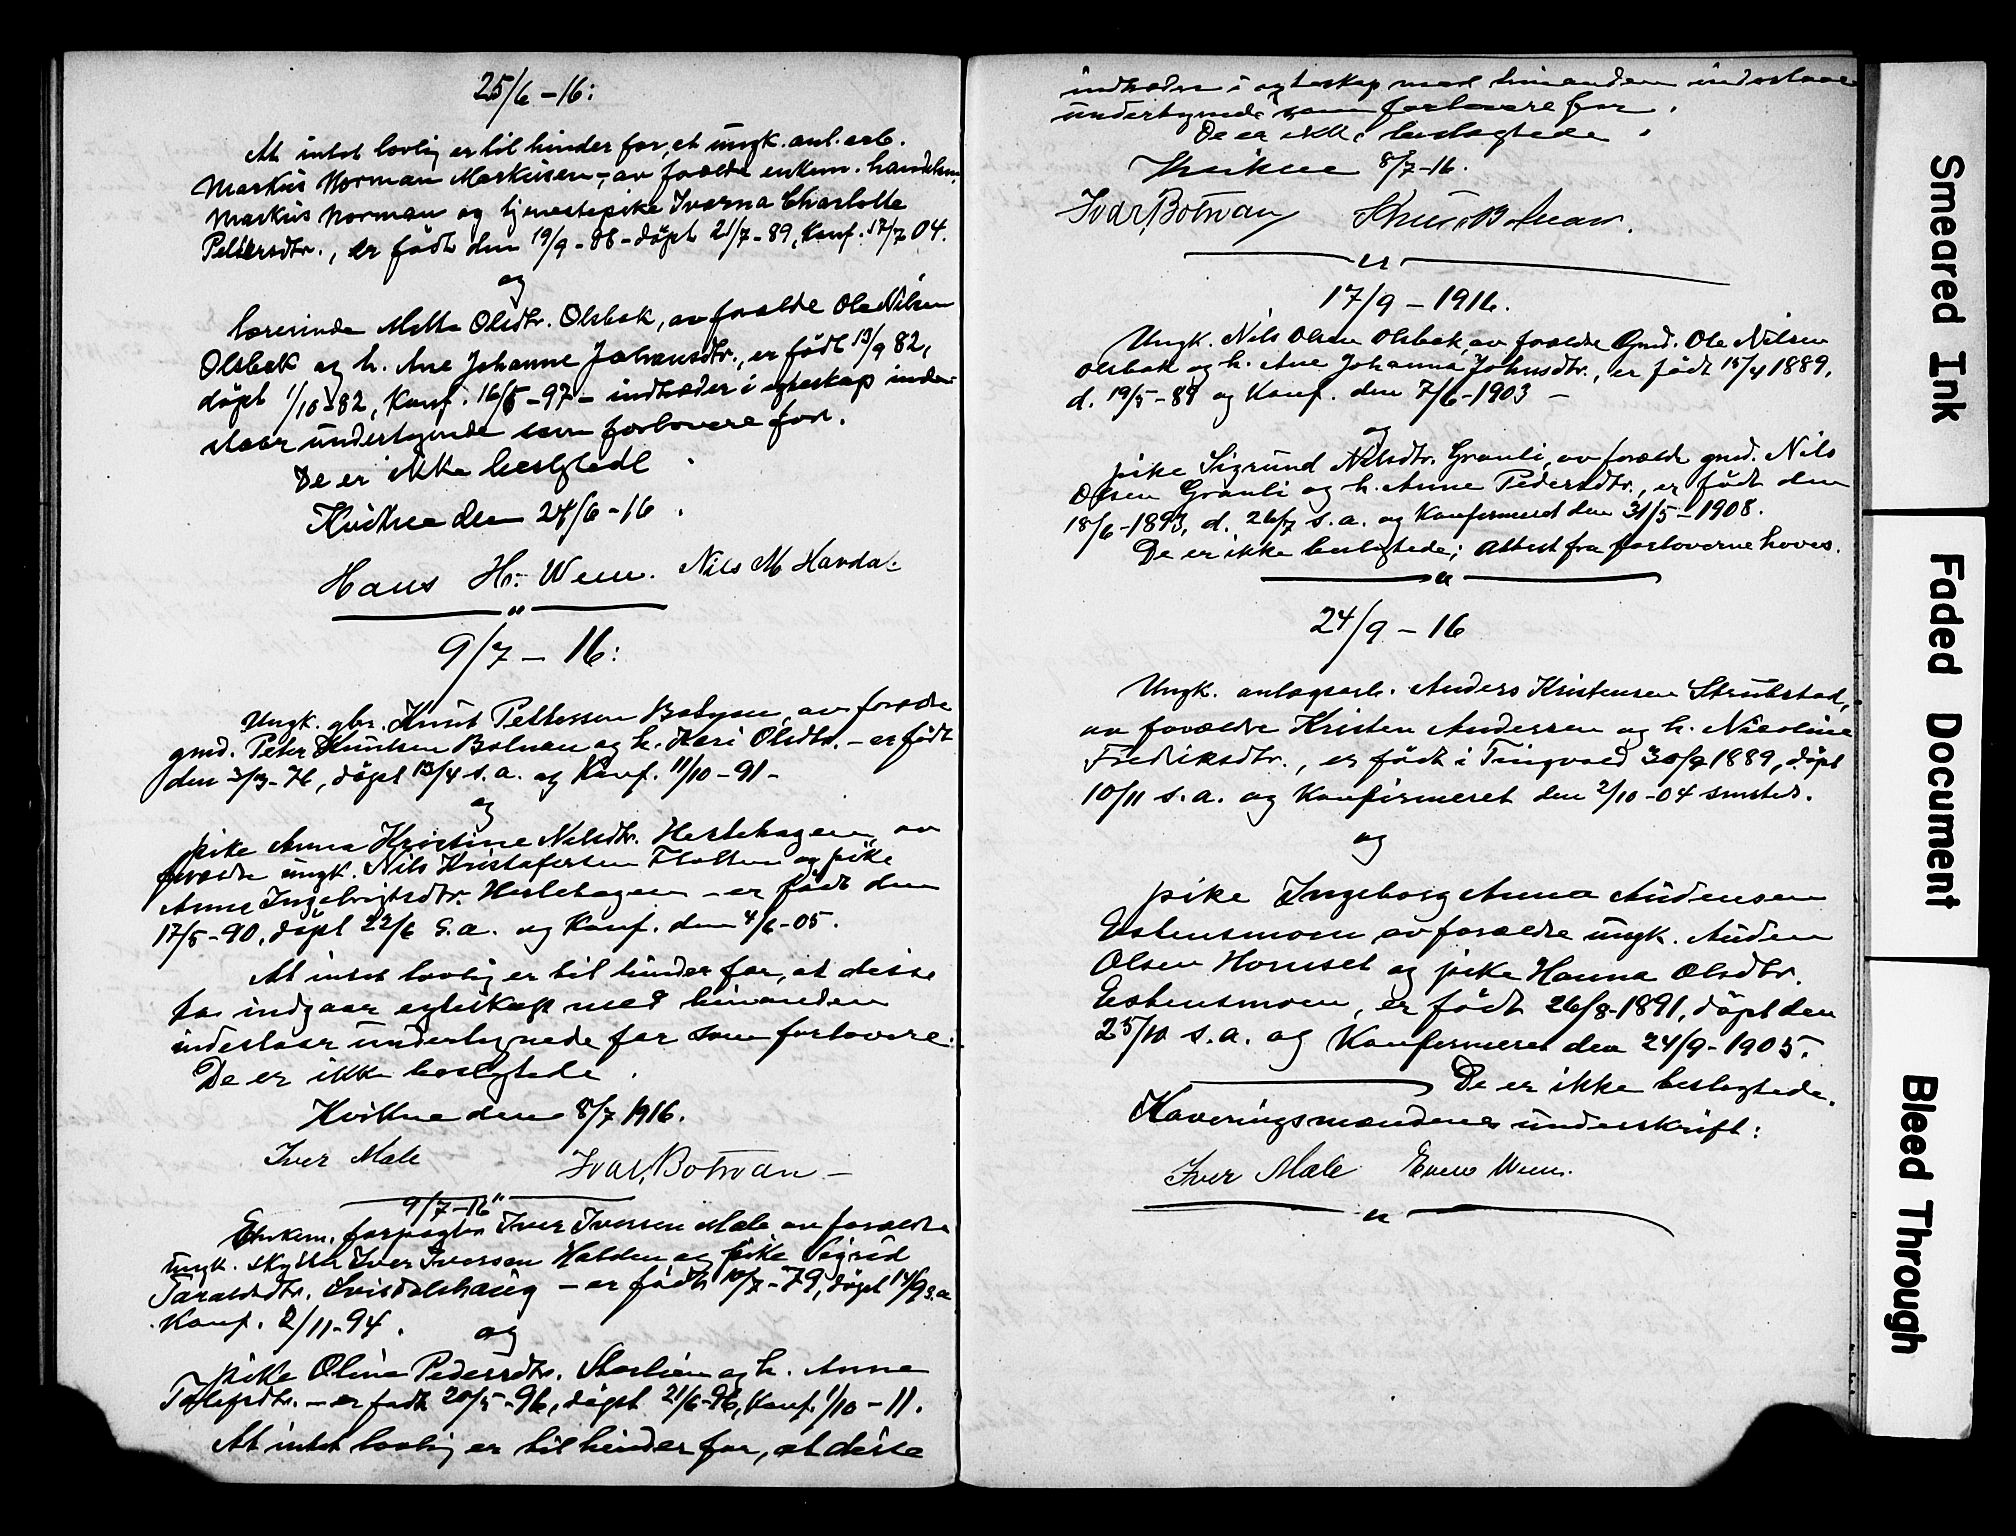 25/6 - 16:
At intet lovlig er til hinder for, at ungk. anl. arb.
Markus Norman Markusen, av forældre enkem. handelsm.
Markus Norman og tjenestepike Ivarna Charlotte
Pettersdtr., er født den 19/9 - 88 - döpt 21/7 - 89, Konf. 17/7 04.
og
lærerinde Mette Olsdtr. Olsbak, av forældre Ole Nilsen
Olsbak og h. Ane Johanne Johnsdtr., er födt 13/9 82,
döpt 1/10 - 82, Konf. 16/5 - 97 - indtræder i egteskap inde-
staar undertegnede som forlovere for.
De er ikke beslegtede
Kvikne den 24/6 - 16.
Hans H. Wen. Nils M Havdal
9/7 - 16:
Ungk. gbr. Knut Pettersen Botnan, av forældre
gmd. Peter Knutsen Botnan og h. Kari Olsdtr. - er født
den 3/3 - 76, döpt 13/4 s.a. og Konf. 11/10 - 91 -
og
pike Anna Kristine Nilsdtr. Hestehagen av
forældre ungk. Nils Kristofersen Flotten og pike
Anne Ingebrigtsdtr. Hestehagen - er født den
17/5 - 90, döpt 22/6 s.a. og Konf. den 4/6 - 05.
At intet lovlig er til hinder for, at disse
to indgaar egteskap med hinanden
indestaar undertegnede for som forlovere.
De er ikke beslegtede.
Kvikne den 8/7 1916.
Iver Mæle Ivar Botnan -
9/7 - 16
Enkem. forpagter Iver Iversen Mæle av forældre
ungk. Iver Iversen Halden og pike Sigrid
Taraldsdtr. - er født 10/7 - 79, döpt 14/9 s.a.
Konf. 2/11 - 94.
og
pike Olina Pedersdtr. og h. Anne
- er født 20/5 - 96, döpt 21/6 - 96, Konf. 1/10 - 11.
At intet lovlig er til hinder for, at disse
indtræder i egteskap med hinanden indestaar
undertegnede som forlovere for.
De er ikke beslegtede.
Kvikne 8/7 - 16.
Ivar Botnan Knut Botnan.
17/9 - 1916.
Ungk. Nils Olsen Olsbak, av forældre Gmd. Ole Nilsen
Olsbak og h. Ane Johanna Johnsdtr., er født 15/4 1889,
d. 19/5 - 89 og Konf. den 7/6 - 1903 -
og
pike Sigrund Nilsdtr. Granli, av forældre gmd. Nils
Olsen Granli og h. Anne Pedersdtr., er født den
18/6 - 1893, d. 26/7 s.a. og Konfirmeret den 31/5 - 1908.
De er ikke beslegtede; Attest fra forloverne haves.
24/9 - 16
Ungk. anlægsarb. Anders Kristensen Strubstad,
av forældre Kristen Anderssen og h. Nicoline
Fredriksdtr., er født i Tingvold 30/9 1889, döpt
10/11 s.a. og Konfirmeret den 2/10 - 04 smsteds.
og
pike Ingeborg Anna Audensen
Estensmoen av forældre ungk. Auden
Olsen Hornset og pike Hanna Olsdtr.
Estensmoen, er födt 26/8 - 1891, döpt den
25/10 s.a. og Konfirmeret den 24/9 - 1905.
De er ikke beslegtede.
Kaveringsmændenes underskrift:
Iver Mæle Even Wen.
Smeared Ink
Faded Document
Bleed Through